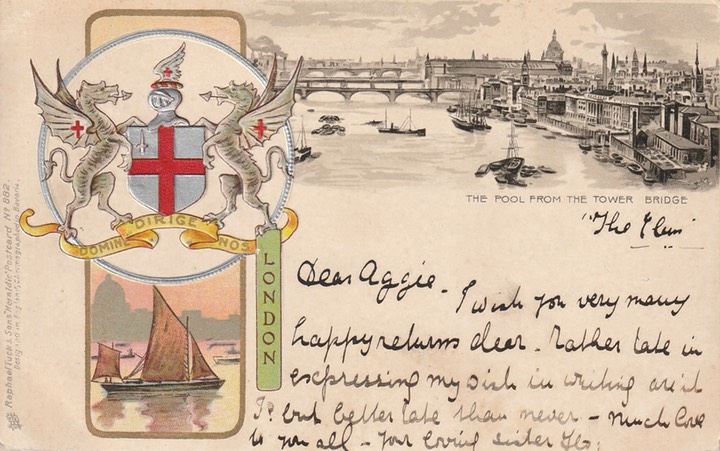 DOMINE DIRIGE NOS
LONDON
Raphael Tuck & Sons "Heraldic" Postcard Nº 882.
Designed in England, Chromographed in Bavaria.
THE POOL FROM THE TOWER BRIDGE
"The Elms"
Dear Aggie. I wish you very many
happy returns dear. Rather late in
expressing my wish in writing ar'nt
I? but better late than never – Much love
to you all – Your loving sister Flo: